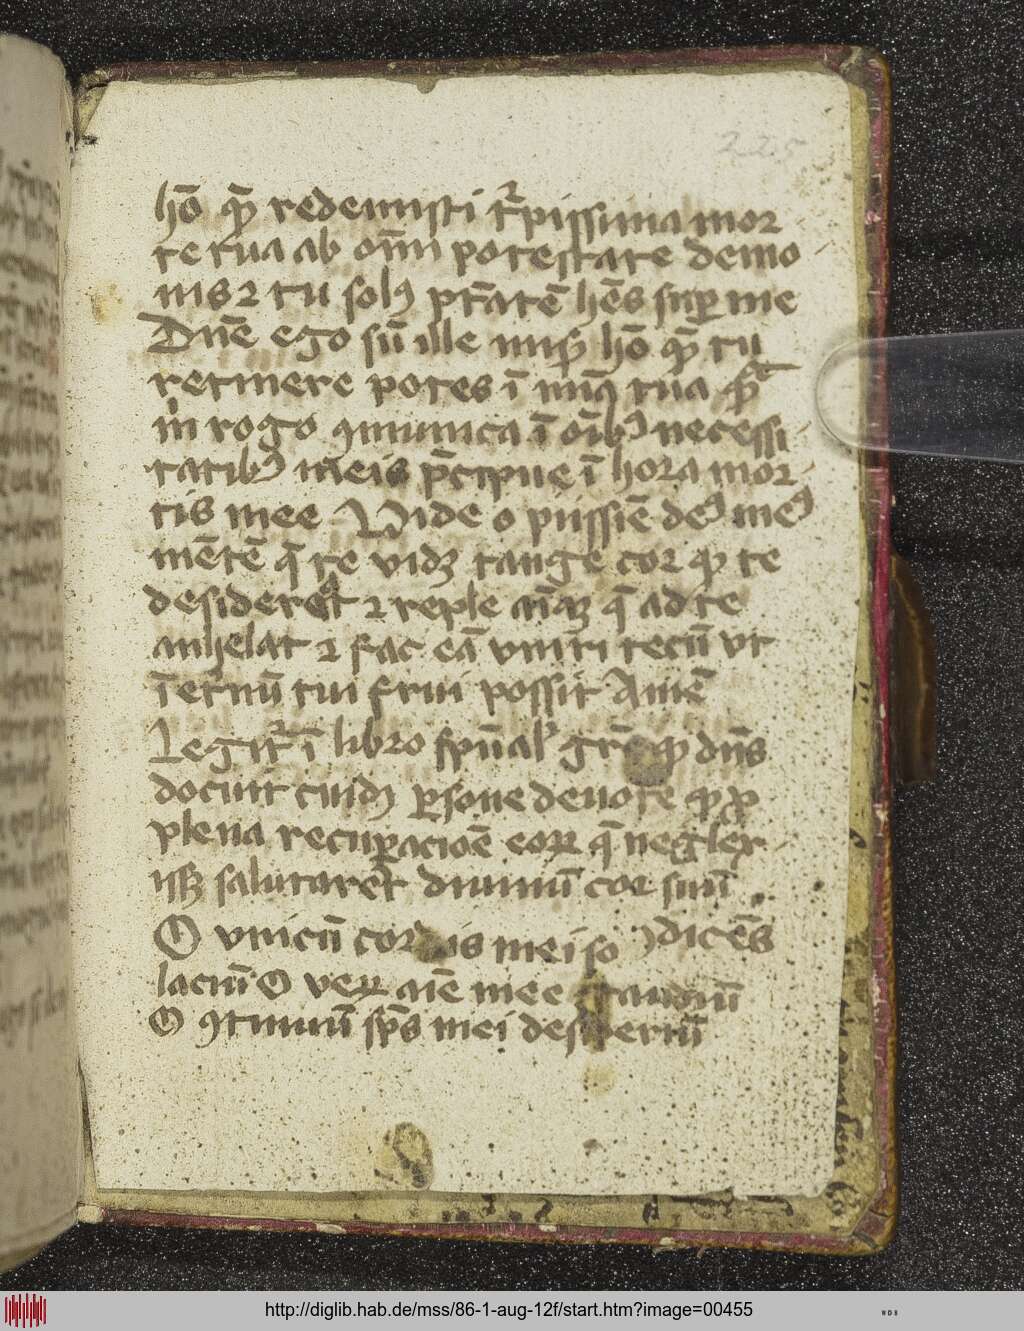 225
hō qͣ̄ redemisti tͬpissima mor
te tua ab om̄i potestate demo
nis ⁊ tu solꝰ pt̄atē hēs suꝑ me
Dn̄e ego sū ille misͦ hō qͣ̄ tu
retinere potes ī mīa tua
rogo ꝯmunica ī oībꝰ necessi
tatibꝰ meis p̄cipue ī hora mor
tis mee Vide o piissīe deꝰ meꝰ
mētē q̄ te vidꝫ tange cor ꝙ te
desideret ⁊ reple aīaꝫ q̄ ad te
anhelat ⁊ fac eā vniri tecū vt
ī et̄nū tui frui possit Amē
Legitͬ ī libro sp̄ualꝭ ꝙ dn̄s
docuit cuidā ꝑsone deuote
plena recuꝑacioē eoꝝ q̄ neglex
issꝫ salutaret diuinū cor suū
O vnicū cordis mei so ꝯdicēs
laciū O veꝝ aīe mee gaudiū
O ꝯtinuū sp̄s mei desideriū
http://diglib.hab.de/mss/86-1-aug-12f/start.htm?image=00455